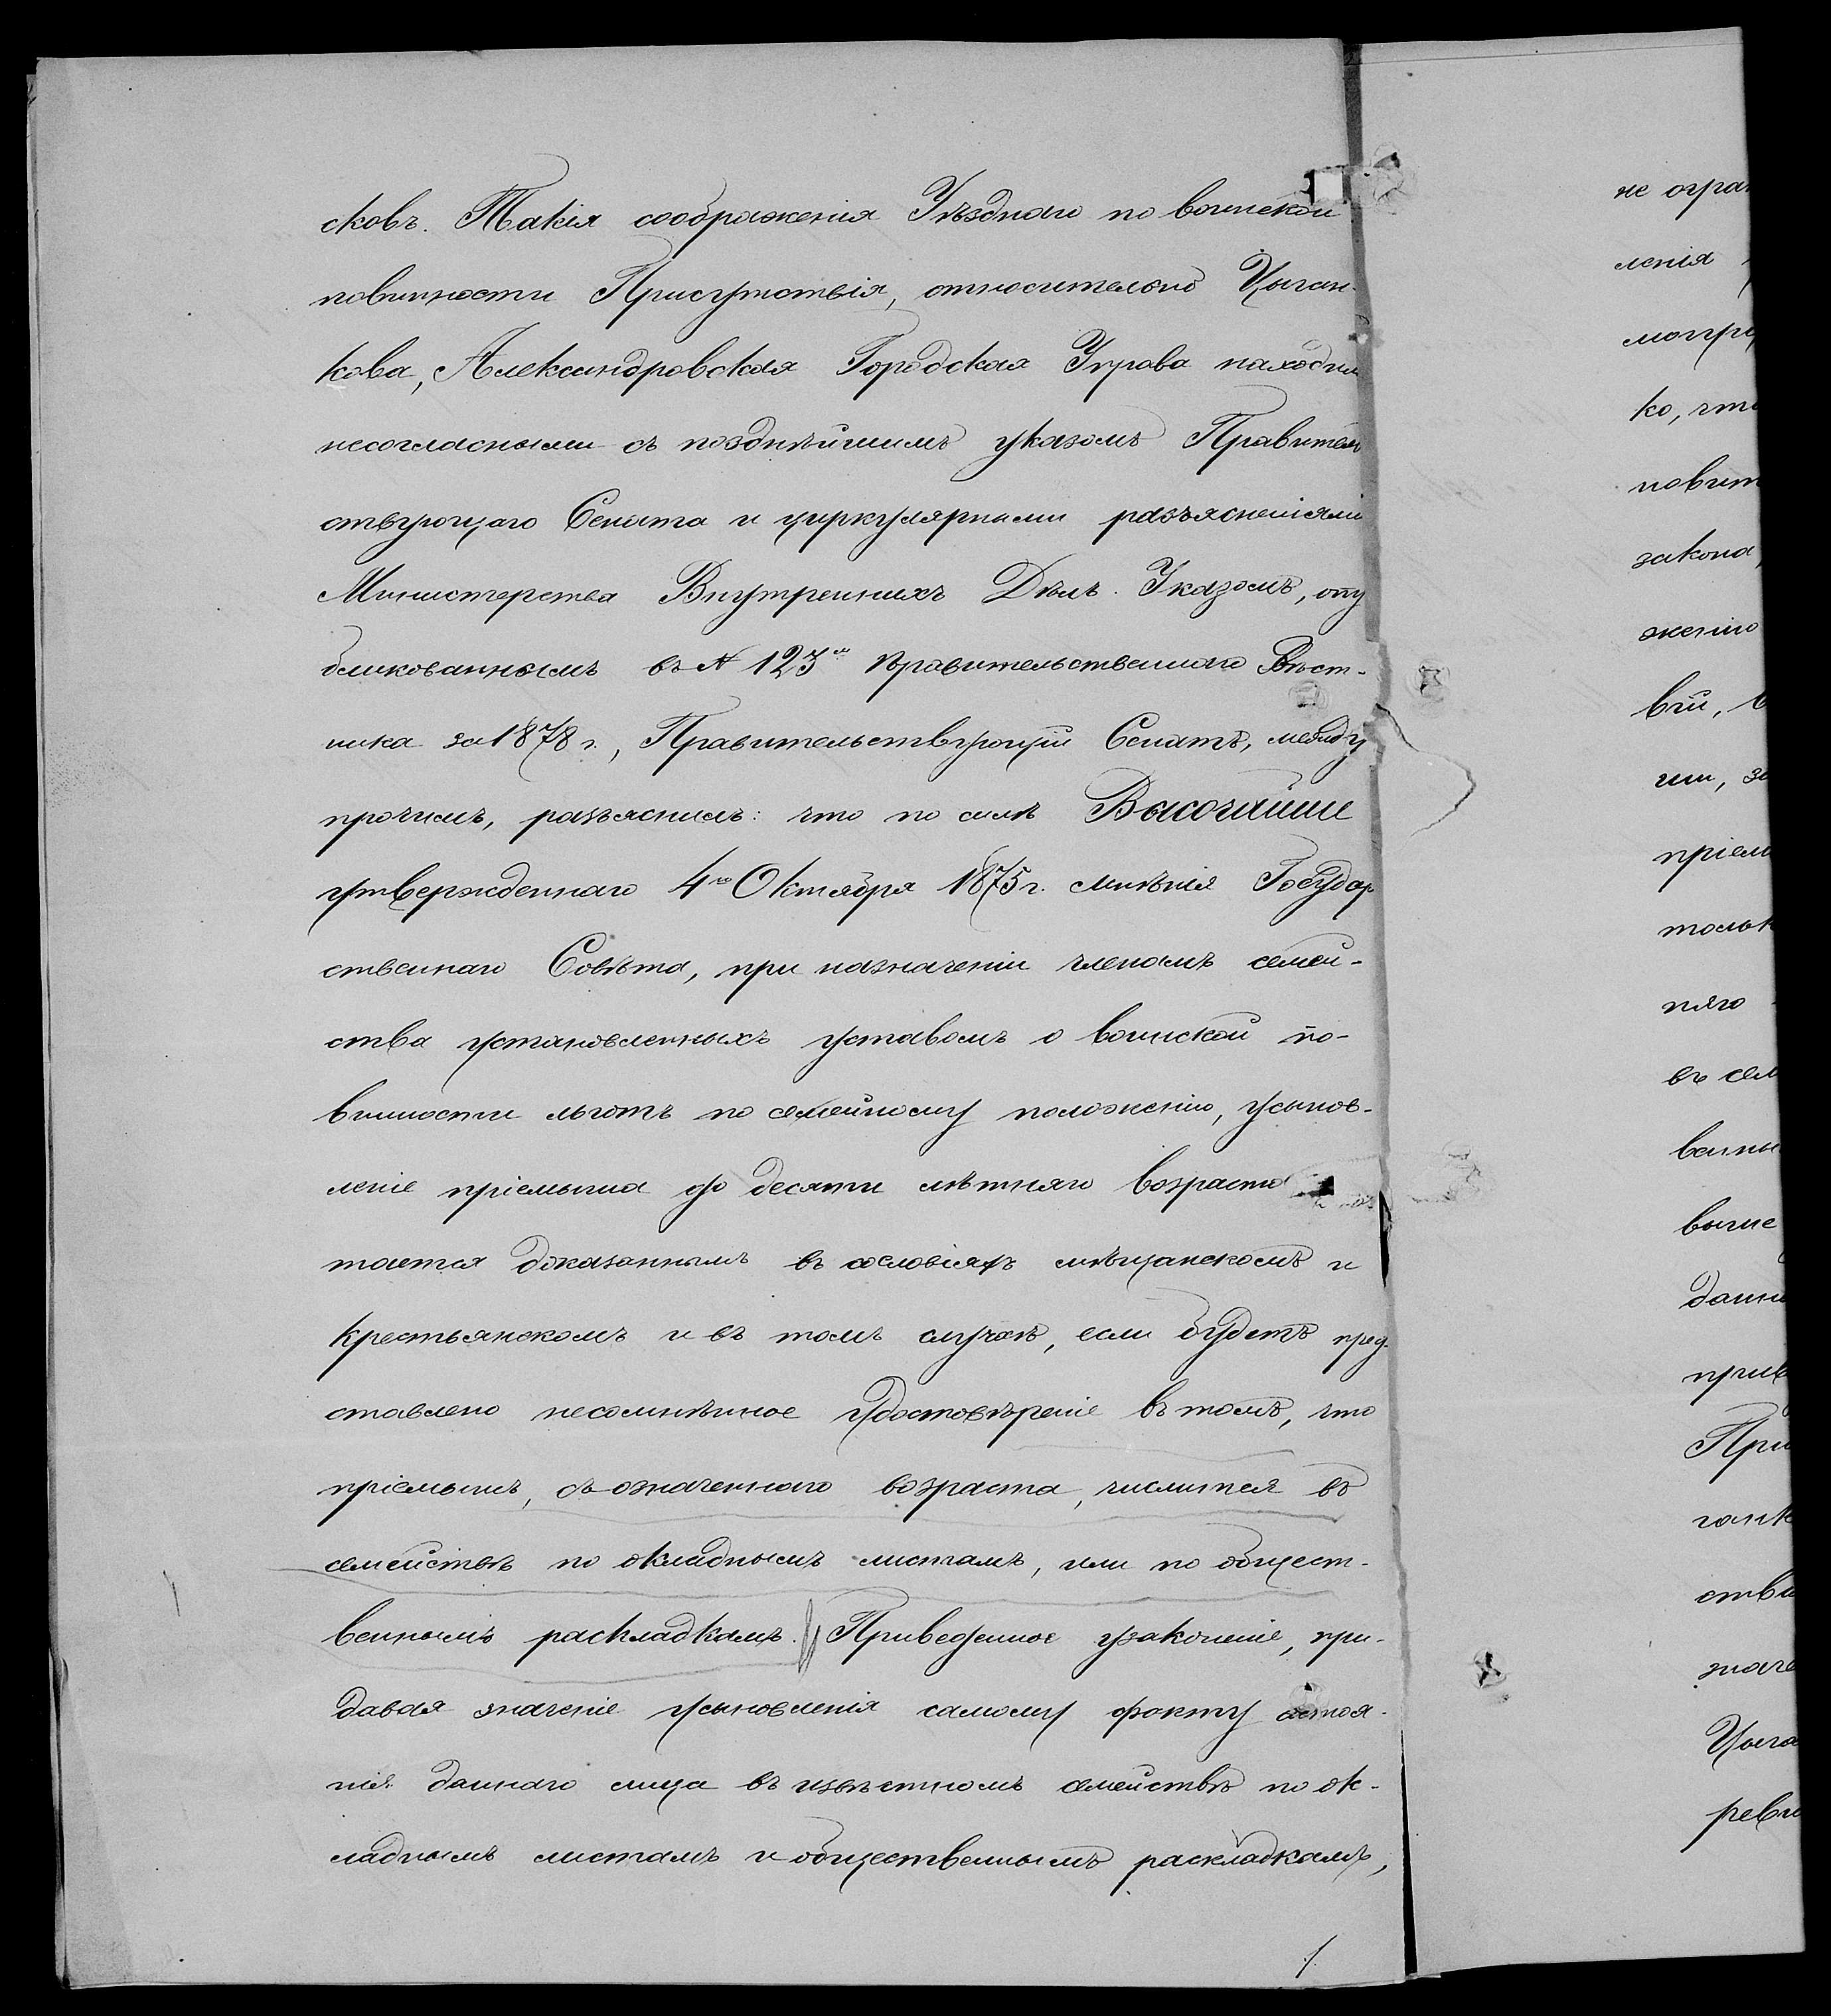 сковъ. Такія соображенія Уѣзднаго по воинской
повинности Присутствія, относительно Цыган-
кова, Александровская Городская Управа находитъ
несогласными съ позднѣйшимъ указомъ Правитель
ствующаго Сената и циркулярными разъясненіями
Министерства Внутреннихъ Дѣлъ. Указомъ, опу
бликованнымъ въ № 123м Правительственнаго Вѣст-
ника за 1878 г., Правительствующій Сенатъ, между
прочимъ, разъяснилъ: что по силѣ Высочайше
утвержденнаго 4го Октября 1875 г. мнѣнія Государ
ственнаго Совѣта, при назначеніи членамъ семей-
ства установленныхъ уставомъ о воинской по-
винности льготъ по семейному положенію, усынов-
леніе пріемыша до десяти лѣтняго возраста
тается доказаннымъ въ сословіяхъ мѣщанскомъ и
крестьянскомъ и въ томъ случаѣ, если будетъ пред-
ставлено несомнѣнное удостовѣреніе въ томъ, что
пріемышъ, съ означеннаго возраста, числится въ
семействѣ по окладнымъ листамъ, или по общест-
веннымъ раскладкамъ. Приведенное узаконеніе, при-
давая значеніе усыновленія самому факту состоя-
нія даннаго лица въ извѣстномъ семействѣ по ок-
ладнымъ листамъ и общественнымъ раскладкамъ,
не огра
ленія
мотру
ко, что
повин
закона,
женію
вій, 
ши, за
пріем
тольк
няго
въ сем
венны
выше
данн
прив
При
ганк
ства
значе
Цыга
реви